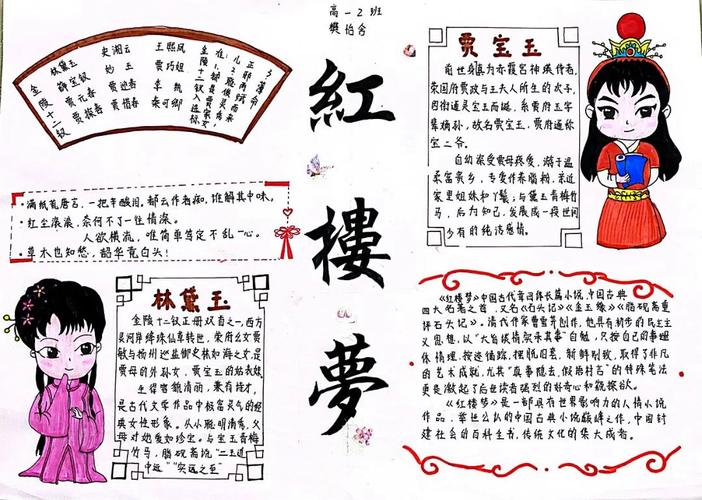 高一2班
樊伯舍
紅
樓
夢
金陵十二钗
林黛玉
薛宝钗
贾元春
贾探春
史湘云
妙玉
贾迎春
贾惜春
王熙凤
贾巧姐
李纨
秦可卿
·满纸荒唐言，一把辛酸泪，都云作者痴，谁解其中味。
·红尘滚滚，奈何不了一往情深。
人欲横流，唯简单笃定不乱一心。
·草木也知愁，韶华竟白头！
林黛玉
金陵十二钗正册双首之一，西方
灵河岸绛珠仙草转世，荣府幺女贾
敏与扬州巡盐御史林如海之女，是
贾母的外孙女，贾宝玉的姑表妹
生得容貌清丽，兼有诗才，
是古代文学作品中极富灵气的经
典女性形象。从小聪明清秀，父
母对她爱如珍宝。与宝玉青梅
竹马，脂砚斋说“二玉道
中远”“实远之至”
贾宝玉
前世身为赤霞宫神瑛侍者，
荣国府贾政与王夫人所生的次子，
因衔通灵宝玉而诞，系贾府玉字
辈嫡孙，故名贾宝玉，贾府通称
宝二爷。
自幼深受贾母疼爱，
家里姐妹和丫鬟；与黛玉青梅竹
马，后为知己，发展成一段世间
少有的纯洁感情。
《红楼梦》中国古代章回体长篇小说，中国古典
四大名著之首，又名《石头记》《金玉缘》《脂砚斋重
评石头记》。清代作家曹雪芹创作，他具有初步的民主主
义思想，以“大旨谈情实录其事”自勉，只按自己的事理
体情理，按迹循踪，摆脱旧套，新鲜别致，取得了非凡
的艺术成就，尤其“真事隐去，假语村言”的特殊笔法
更是激起了后世读者强烈的好奇心和窥探欲。
《红楼梦》是一部具有世界影响力的人情小说
作品，举世公认的中国古典小说巅峰之作，中国封
建社会的百科全书，传统文化的集大成者。